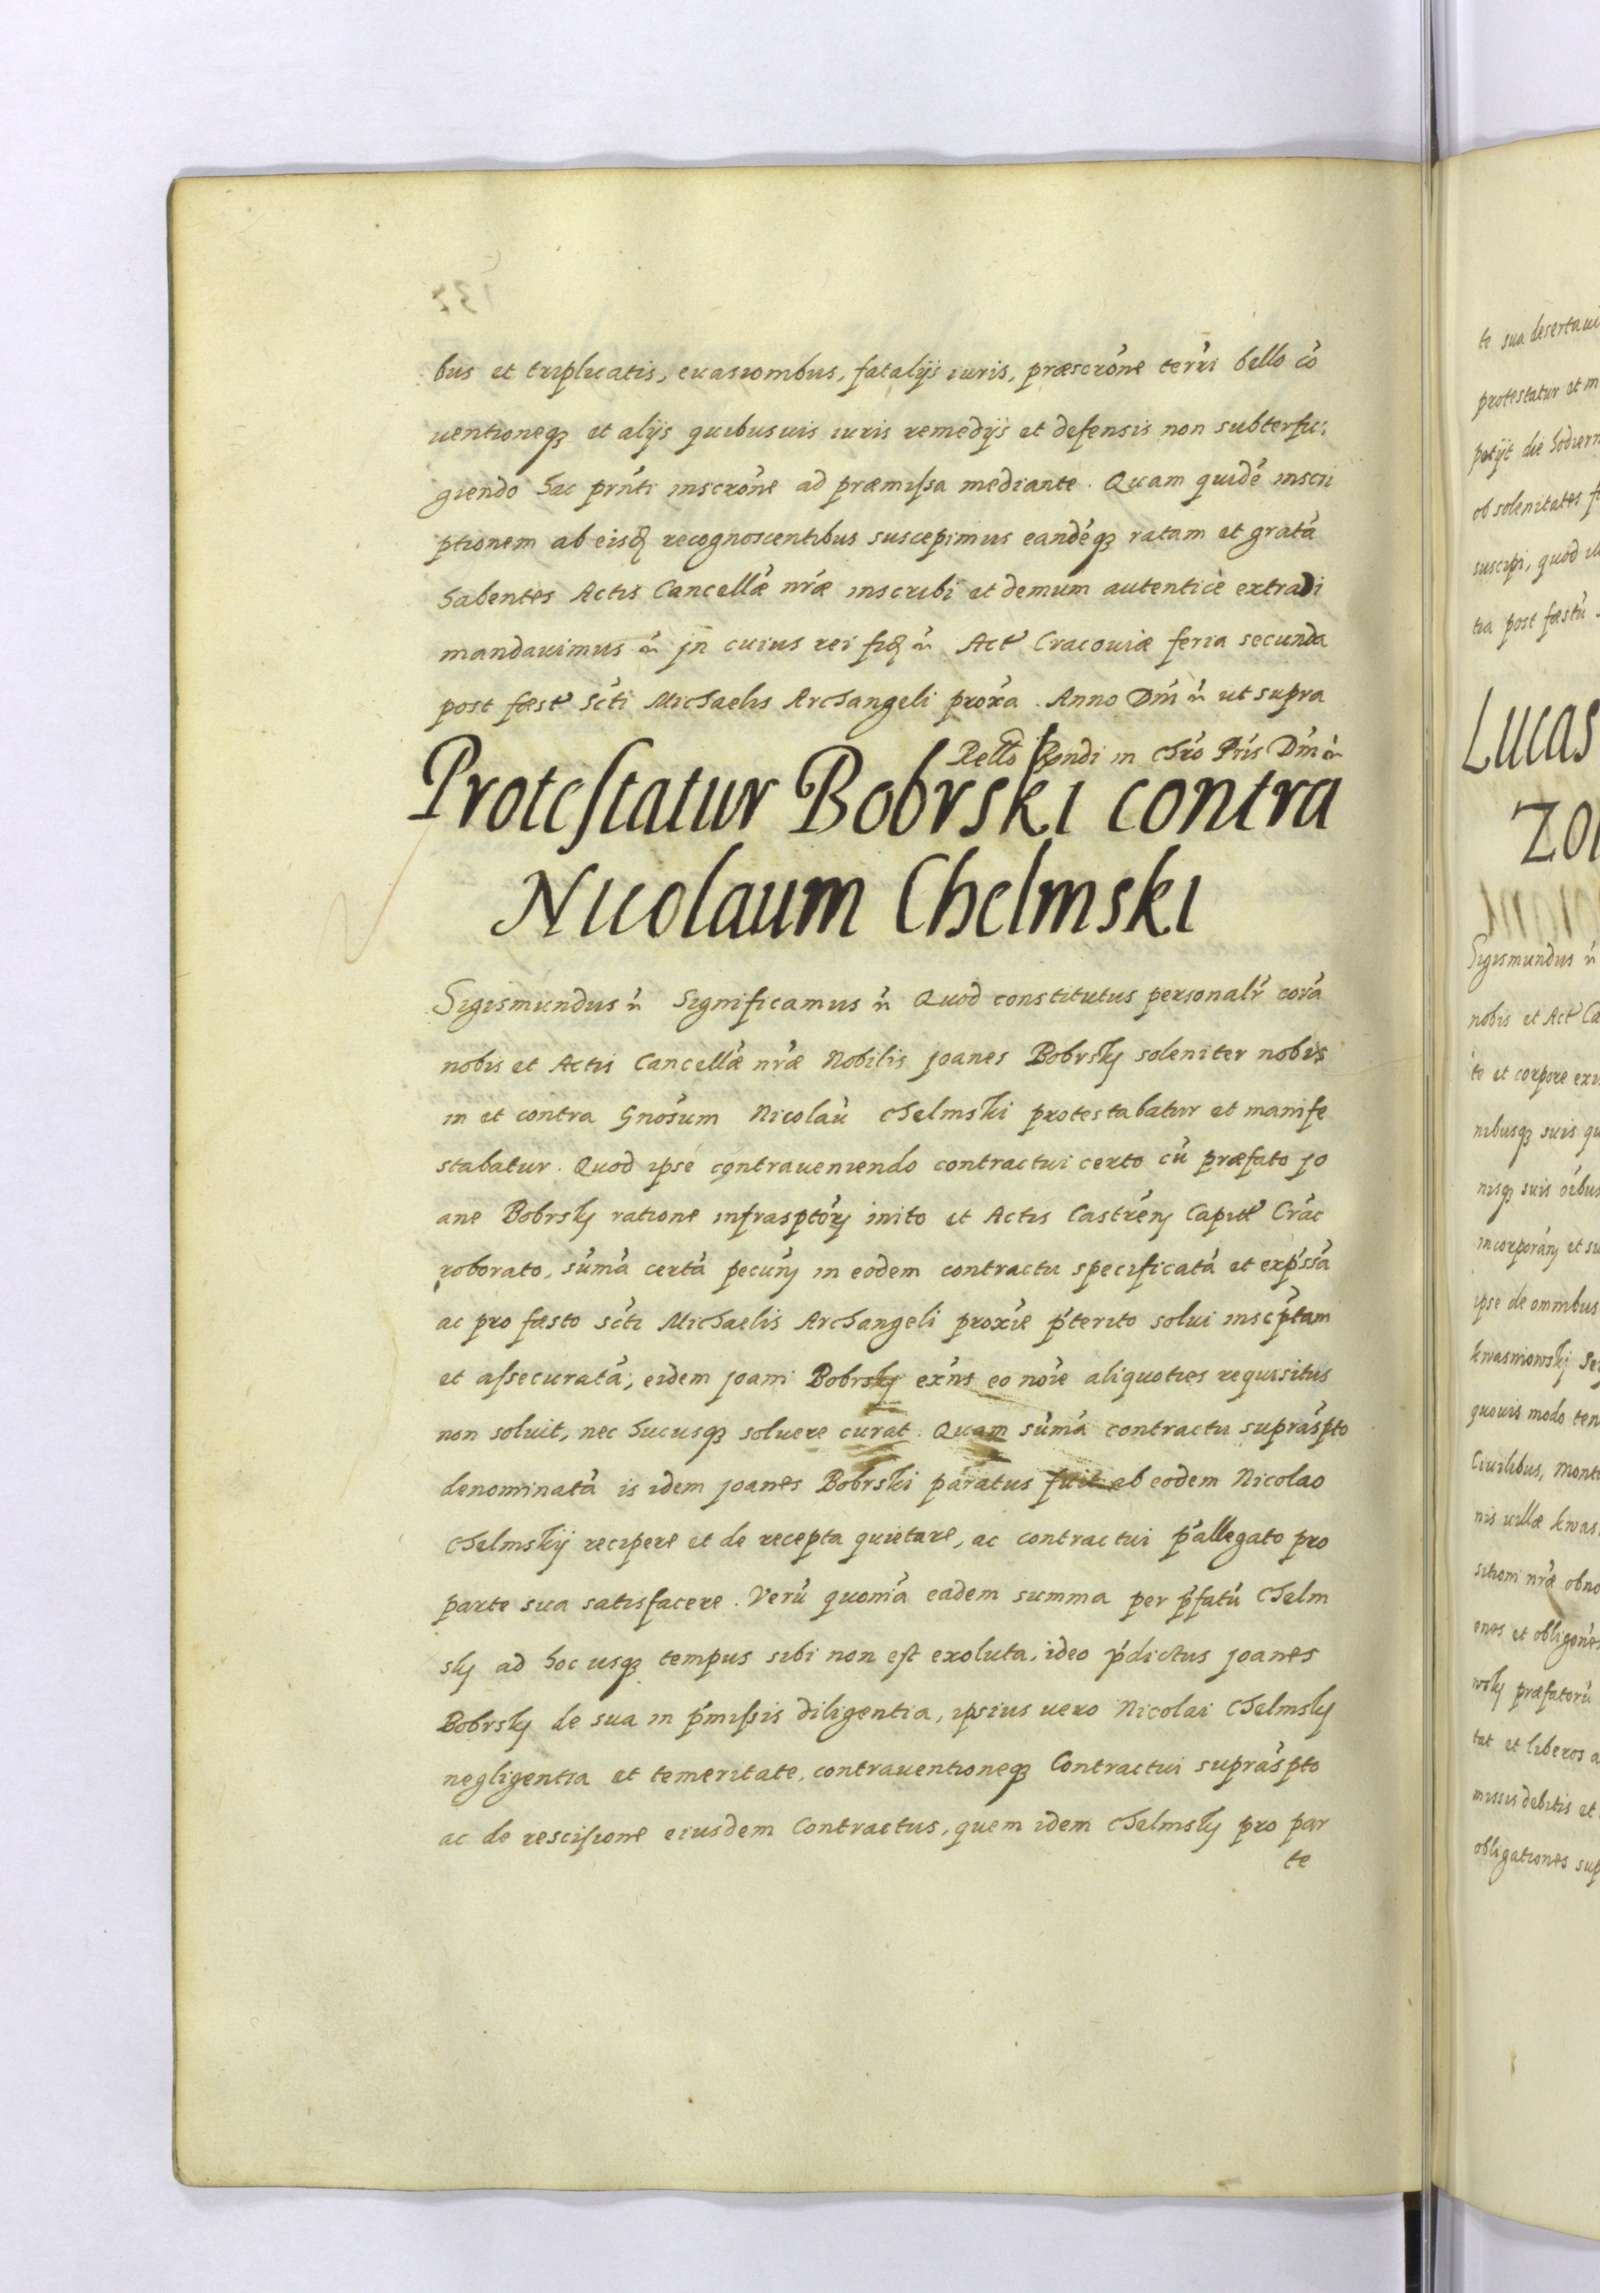 bus et triplicatis, euasionibus, fatalijs iuris, præscrône terrj bello cô
uentioneq3 et alijs quibusuis iuris remedijs et defensis non subterfu:
giendo hac prnti inscrône ad præmissa mediante. Quam quidé inscri
ptionem ab eisd recognoscentibus suscepimus eandéq3 ratam et gratá
habentes Actis Cancellæ nræ inscribi et demum autenticè extradi
mandauimus etc jn cuius rei fid etc Act Cracouiæ feria secunda
post fæst Scti Michaelis Archangeli proxa. Anno Dni etc ut supra
Rello Rendi in Chro Pris Dni etc
Protestatur Bobrski contra
Nicolaum Chelmski
Sigismundus etc Significamus etc Quod constitutus personalr corá
nobis et Actis Cancellæ nræ Nobilis joanes Bobrskj soleniter nobis
in et contra Gnosum Nicolaú Chelmski protestabatur et manife
stabatur. Quod ipse contraueniendo contractui certo cú præfato jo
ane Bobrskj ratione infrasptorj inito et Actis Castrenj Capitt Crac
roborato, súmá certá pecunj in eodem contractu specificatá et expssá
ac pro fæsto scti Michaelis Archangeli proxie pterito solui inscptam
et assecuratá, eidem joani Bobrskj exns eo noie aliquoties requisitus
non soluit, nec hucusq3 soluere curat. Quam súmá contractu supraspto
denominatá is idem joanes Bobrski paratus fuit ab eodem Nicolao
Chelmskij recipere et de recepta quietare, ac contractui pallegato pro
parte sua satisfacere. Verú quoniá eadem summa per pfatú Chelm
skj ad hoc usq3 tempus sibi non est exoluta, ideo pdictus joanes
Bobrskj de sua in pmissis diligentia, ipsius uero Nicolai Chelmskj
negligentia et temeritate, contrauentioneq3 Contractui supraspto
ac de rescisione eiusdem Contractus, quem idem Chelmskj pro par
te
te sua
protestatur et
die
ob solenitates
suscipi, quod
tia post fæstú
Lucas
Sigismundus etc
nobis et Act
et corpore
nibusq3 suis
nisq3 suis oibus
incorporanj et
ipse de omnibus
quouis modo
Ciuilibus,
nis uillæ
nræ
et
præfatorú
et liberos
debitis et
obligationes